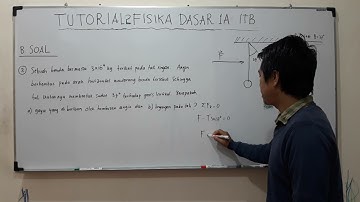 TUTORIAL2FISIKA DASAR 1A ITB
B SOAL
③ Sebuah benda bermassa 3x10⁻⁴ kg terikat pada tali ringan. Angin
berhembus pada arah horizontal mendorong benda tersebut sehingga
tali membentuk sudut terhadap garis vertikal. Berapakah
a) gaya yang diberikan oleh hembusan angin dan b) tegangan pada tali ?
F
ΣFx = 0
= 0
F